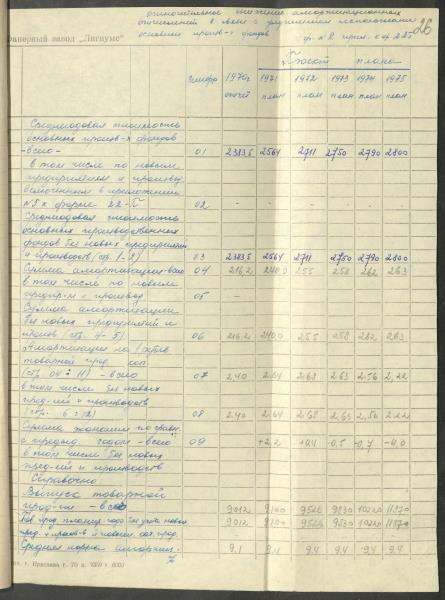 отчислений в связи с улучшением использования
основных произв-х фондов
26
Фанерный завод „Лигнумс"
Проект плана
шифр 1970г 1971 1972 1973 1974 1975
отчёт план план план план план
Среднегодовая стоимость
основных произв-х фондов
-всего- 01 2383.5 2564 2711 2750 2790 2800
в том числе по новым
предприятиям и производ.
включенным в приложении
№5 к форме 22-П 02 -
Среднегодовая стоимость
основных производственных
фондов без новых предприятий
и производств (стр. 1-2) 03 2383.5 2564 2711 2750 2790 2800
Сумма амортизации-всего 04 216,2 240.0 255 258 262 263
в том числе по новым
предпр-м и производ. 05 -
Сумма амортизации
без новых предприятий и
произв (стр. 4-5) 06 216,2 240,0 255 258 262 263
Амортизация на 1 рубль
товарной прод. коп
(стр. 04 : 11) - всего 07 2,40 2,64 2,68 2,63 2,56 2,22
в том числе без новых
пред-ий и производств
(стр. 6 : 12) 08 2,40 2,64 2,68 2,63 2,56 2,22
Сумма экономии по сравн.
с предыд. годом - всего 09 +2,2 +0,4 -0,5 -0,7 -4,0
в том числе без новых
пред-ий и производств
Справочно
Выпуск товарной
прод-ии - всего 9012 9100 9526 9830 10220 11870
Тов. прод. планир. года без учета новых
пред. и произв-в 9012 9100 9526 9830 10220 11870
Средняя норма амортиз. 9,1 9,4 9,4 9,4 9,4
%